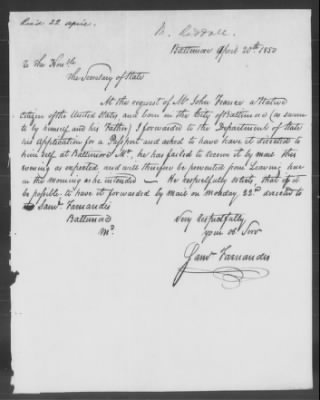 Rec'd 22 April.
B. Riddall.
Baltimore April 20th 1850
To the Honble
The Secretary of State
At the request of Mr John France a Native
Citizen of the United States, and born in the City of Baltimore (as sworn
to by himself and his Father) I forwarded to the Department of State
his Application for a Passport and asked to have it directed to
him self at Baltimore Md, he has failed to receive it by mail this
evening as expected and will therefore be prevented from Leaving here
in the morning as he intended — He respectfully asks, that if it
be possible to have it forwarded by mail on Monday 22d directed to
Saml Farnandis
Baltimore
Md
Very Respectfully
Your ob Serv
Saml Farnandis